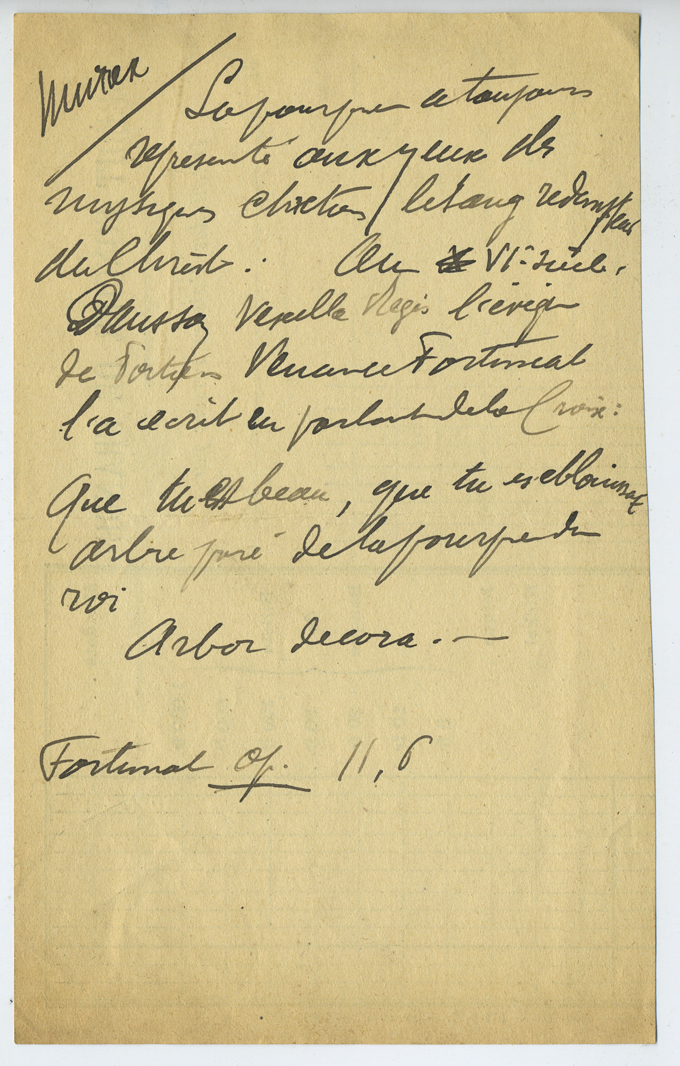 Murex
La pourpre a toujours
représenté aux yeux des
mystiques chrétiens le sang rédempteur
du Christ. Au VIe siècle,
Dans son Vexilla Regis l'évêque
de Poitiers Venance Fortunat
l'a écrit en parlant de la Croix :
Que tu es beau, que tu es éblouissant
arbre paré de la pourpre du
roi
Arbor decora. —
Fortunat op. 11, 6